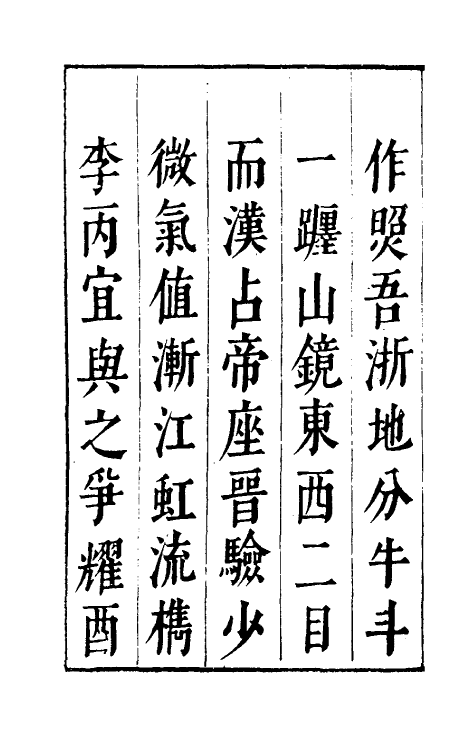 作煛吾浙地分牛斗
一躔山鏡東西二目
而漢占帝座晉驗少
微氣值漸江虹流檇
李丙宜與之爭耀酉